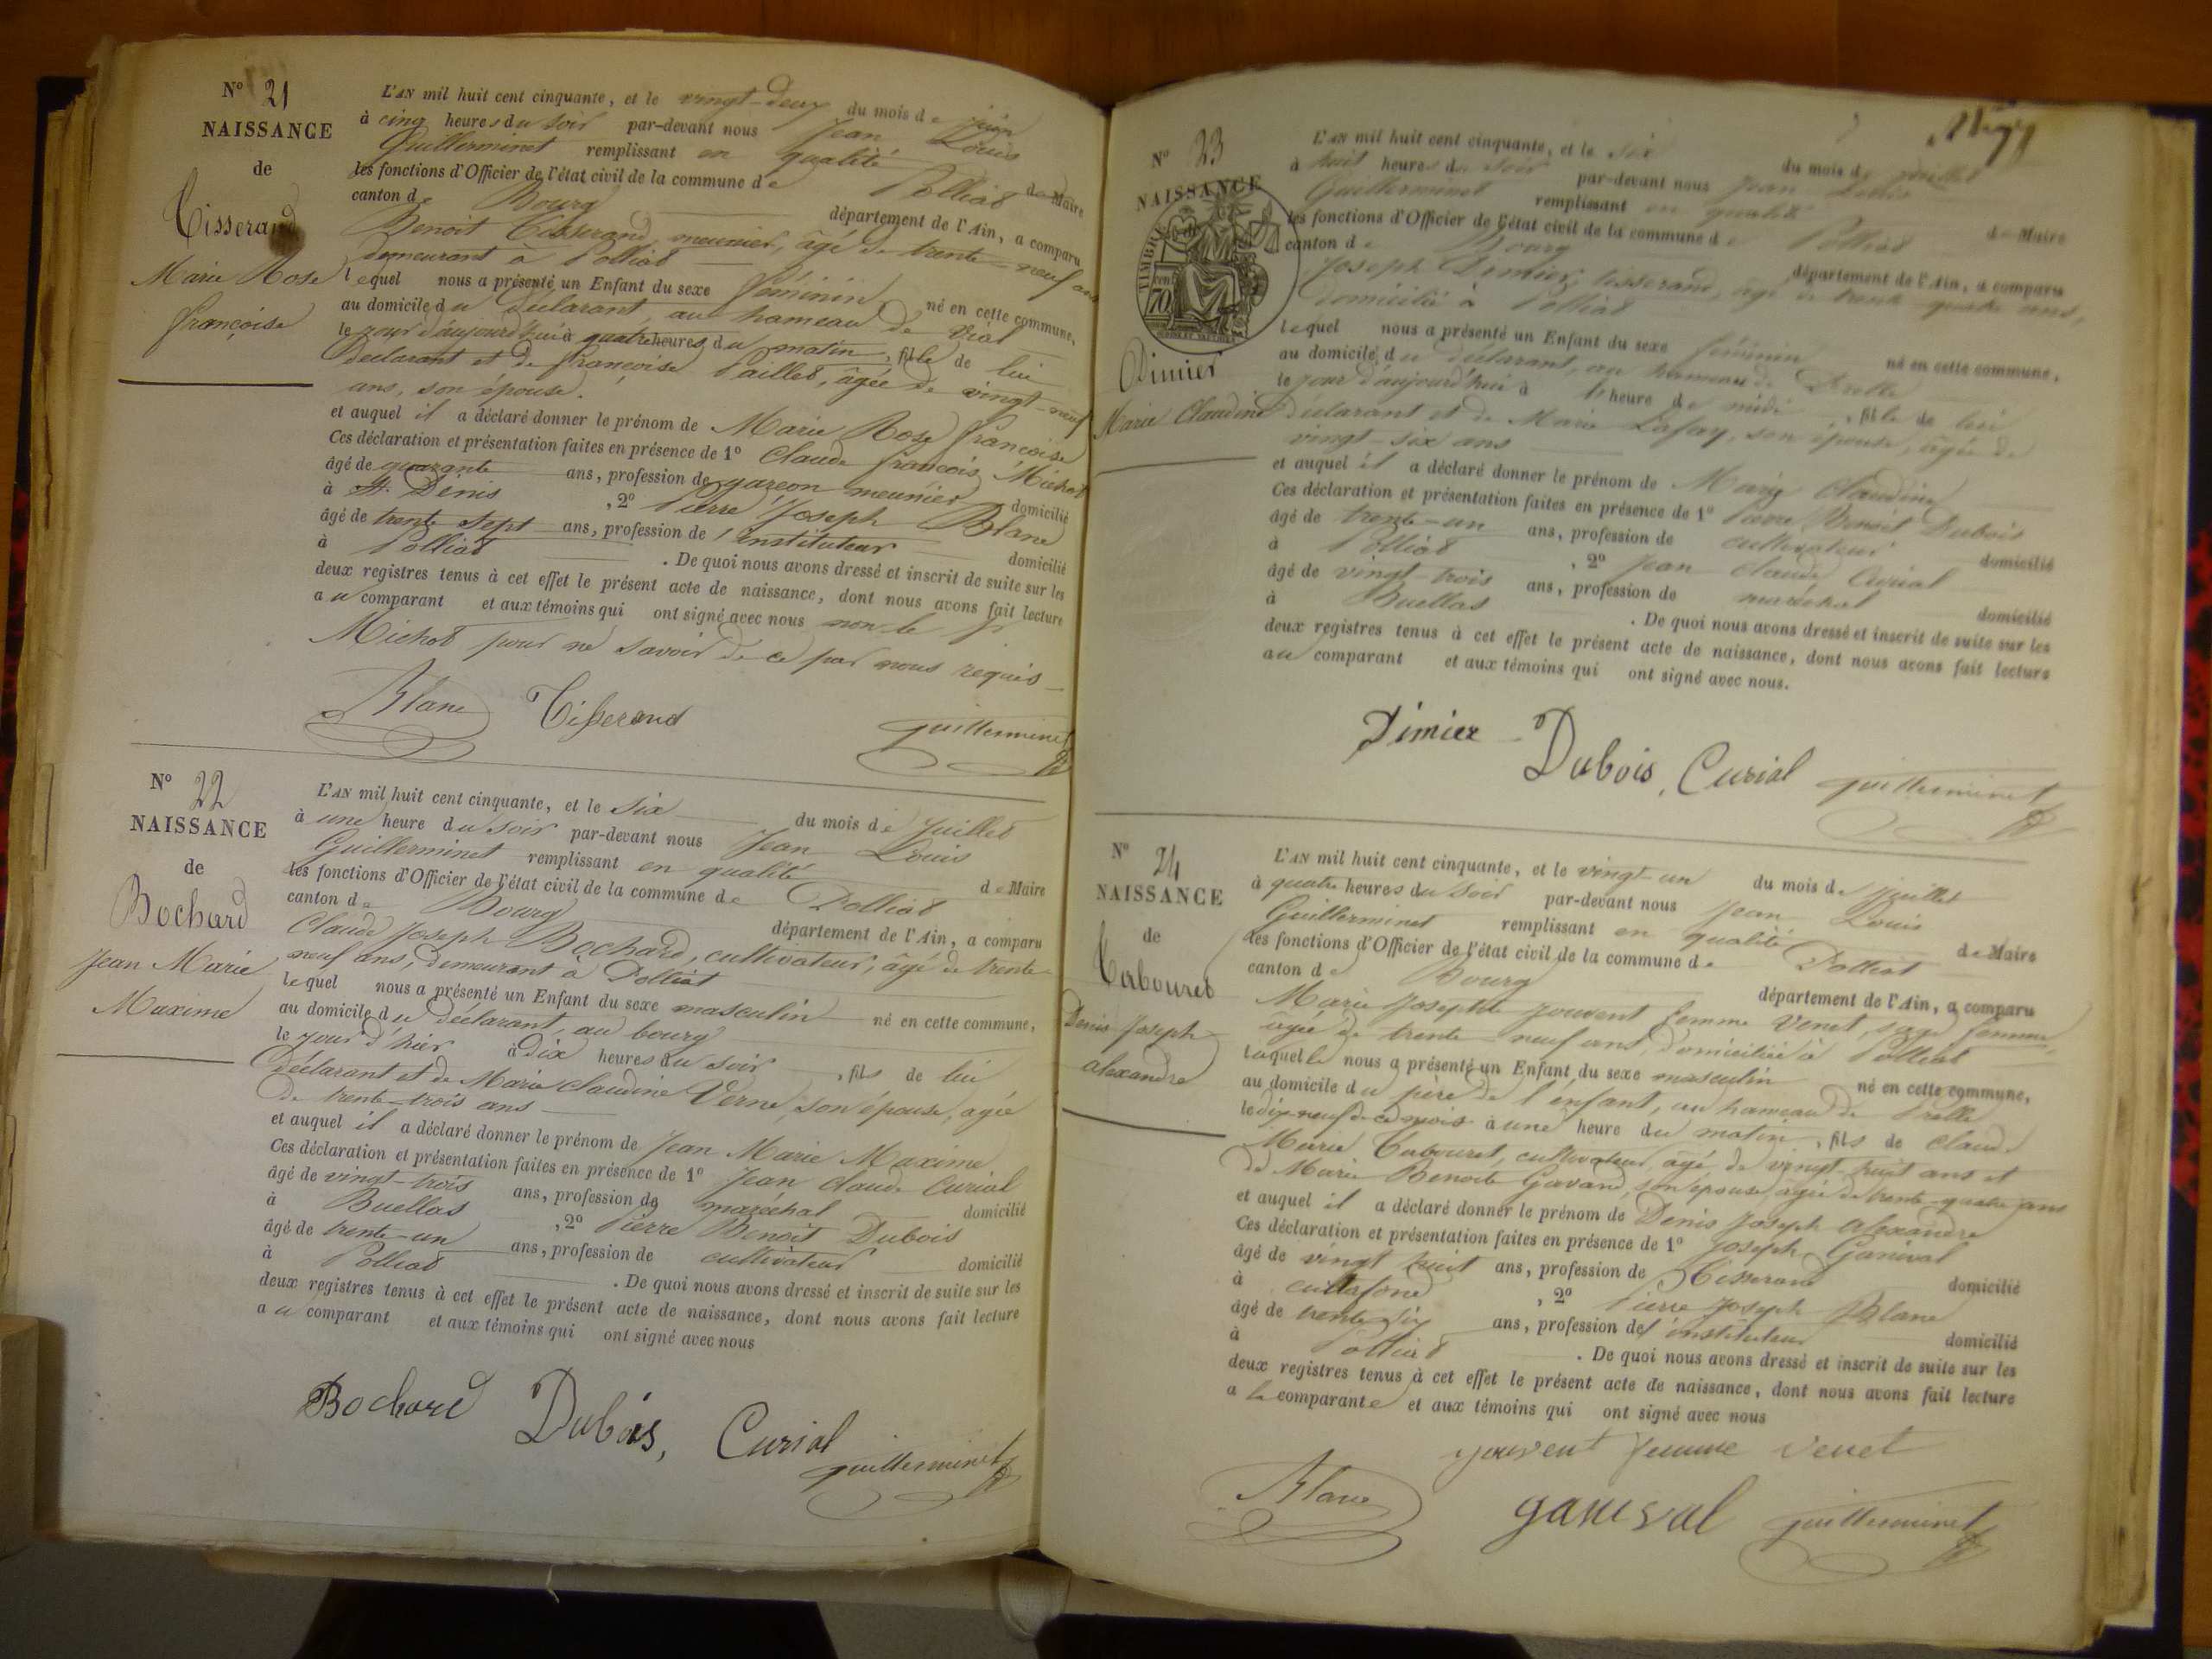 N° 21
NAISSANCE
de
Tisserand
Marie Rose
françoise
L'AN mil huit cent cinquante, et le vingt-deux du mois de juin
à cinq heures du soir par-devant nous Jean Louis
Guillerminet remplissant en qualité de Maire
les fonctions d'Officier de l'état civil de la commune de Polliat
canton de Bourg département de l'Ain, a comparu
Benoit Tisserand, meunier, âgé de trente-neuf ans
demeurant à Polliat
lequel nous a présenté un Enfant du sexe féminin né en cette commune,
au domicile du déclarant, au hameau de Vial
le jour d'aujourd'hui à quatre heures du matin, fille de lui
déclarant et de françoise Paillet, âgée de vingt-neuf
ans, son épouse.
et auquel il a déclaré donner le prénom de Marie Rose françoise
Ces déclaration et présentation faites en présence de 1° Claude françois Michot
âgé de quarante ans, profession de garçon meunier domicilié
à St. Denis, 2° Pierre Joseph Blanc
âgé de trente sept ans, profession de instituteur domicilié
à Polliat. De quoi nous avons dressé et inscrit de suite sur les
deux registres tenus à cet effet le présent acte de naissance, dont nous avons fait lecture
au comparant et aux témoins qui ont signé avec nous non le
Michot pour ne savoir de ce par nous requis
Blanc Tisserand guillerminet
N° 22
NAISSANCE
de
Bochard
Jean Marie
Maxime
L'AN mil huit cent cinquante, et le six du mois de Juillet
à une heure du soir par-devant nous Jean Louis
Guillerminet remplissant en qualité de Maire
les fonctions d'Officier de l'état civil de la commune de Polliat
canton de Bourg département de l'Ain, a comparu
Claude Joseph Bochard, cultivateur, âgé de trente
neuf ans, demeurant à Polliat
lequel nous a présenté un Enfant du sexe masculin né en cette commune,
au domicile du déclarant, au bourg
le jour d'hier à dix heures du soir, fils de lui
Déclarant et de Marie Claudine Verne, son épouse, agée
de trente-trois ans
et auquel il a déclaré donner le prénom de Jean Marie Maxime
Ces déclaration et présentation faites en présence de 1° Jean Claude Curial
âgé de vingt-trois ans, profession de maréchal domicilié
à Buellas, 2° Pierre Benoit Dubois
âgé de trente-un ans, profession de cultivateur domicilié
à Polliat. De quoi nous avons dressé et inscrit de suite sur les
deux registres tenus à cet effet le présent acte de naissance, dont nous avons fait lecture
au comparant et aux témoins qui ont signé avec nous
Bochard Dubois, Curial guillerminet
N° 23
NAISSANCE
TIMBRE
70
Dimier
Marie Claudine
L'AN mil huit cent cinquante, et le six du mois de juillet
à huit heures du soir par-devant nous Jean Louis
Guillerminet remplissant en qualité de Maire
les fonctions d'Officier de l'état civil de la commune de Polliat
canton de Bourg département de l'Ain, a comparu
Joseph Dimier, tisserand, agé de trente quatre ans,
domicilié à Polliat
lequel nous a présenté un Enfant du sexe féminin né en cette commune,
au domicile du déclarant, au hameau de Prelle
le jour d'aujourd'hui à heure de midi, fille de lui
déclarant et de Marie Lafay, son épouse, âgée de
vingt-six ans
et auquel il a déclaré donner le prénom de Marie Claudine
Ces déclaration et présentation faites en présence de 1° Pierre Benoit Dubois
âgé de trente-un ans, profession de cultivateur domicilié
à Polliat, 2° Jean Claude Curial
âgé de vingt-trois ans, profession de maréchal domicilié
à Buellas. De quoi nous avons dressé et inscrit de suite sur les
deux registres tenus à cet effet le présent acte de naissance, dont nous avons fait lecture
au comparant et aux témoins qui ont signé avec nous.
Dimier Dubois, Curial guillerminet
N° 24
NAISSANCE
de
Tabouret
Denis Joseph
alexandre
L'AN mil huit cent cinquante, et le vingt-un du mois de juillet
à quatre heures du soir par-devant nous Jean Louis
Guillerminet remplissant en qualité de Maire
les fonctions d'Officier de l'état civil de la commune de Polliat
canton de Bourg département de l'Ain, a comparu
Marie Josephte Jouvent femme Venet, sage femme,
âgée de trente neuf ans, domiciliée à Polliat
laquelle nous a présenté un Enfant du sexe masculin né en cette commune,
au domicile du père de l'enfant, au hameau de Prelle
le dix-neuf de ce mois à une heure du matin, fils de Claude
Marie Tabouret, cultivateur, âgé de vingt-huit ans et
de Marie Benoite Gavand, son épouse, âgée de trente-quatre ans
et auquel il a déclaré donner le prénom de Denis Joseph alexandre
Ces déclaration et présentation faites en présence de 1° Joseph Ganival
âgé de vingt huit ans, profession de Tisserand domicilié
à, 2° Pierre Joseph Blanc
âgé de trente six ans, profession de instituteur domicilié
à Polliat. De quoi nous avons dressé et inscrit de suite sur les
deux registres tenus à cet effet le présent acte de naissance, dont nous avons fait lecture
a la comparante et aux témoins qui ont signé avec nous
jouvent femme venet
Blanc ganival guillerminet